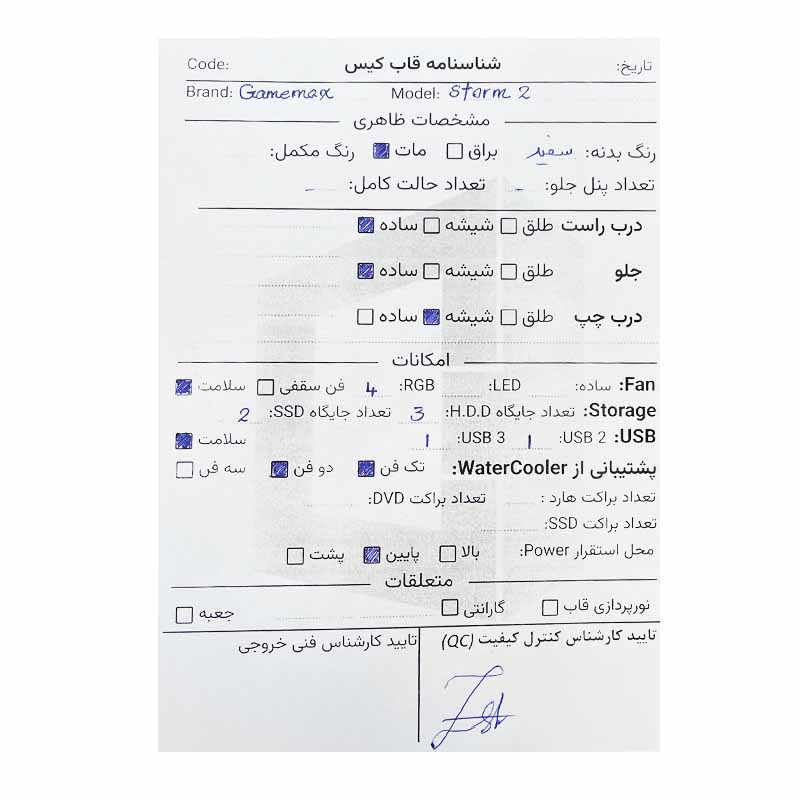 تاریخ: شناسنامه قاب کیس Code:
Brand: Gamemax Model: Storm 2
مشخصات ظاهری
رنگ بدنه: سفید براق مات رنگ مکمل:
تعداد پنل جلو: - تعداد حالت کامل: -
درب راست طلق شیشه ساده
جلو طلق شیشه ساده
درب چپ طلق شیشه ساده
امکانات
Fan: ساده: LED: RGB: 4 فن سقفی سلامت
Storage: تعداد جایگاه H.D.D: 3 تعداد جایگاه SSD: 2
USB: USB 2: 1 USB 3: 1 سلامت
پشتیبانی از WaterCooler: تک فن دو فن سه فن
تعداد براکت هارد : تعداد براکت DVD:
تعداد براکت SSD:
محل استقرار Power: بالا پایین پشت
متعلقات
نورپردازی قاب گارانتی جعبه
تایید کارشناس کنترل کیفیت (QC) تایید کارشناس فنی خروجی